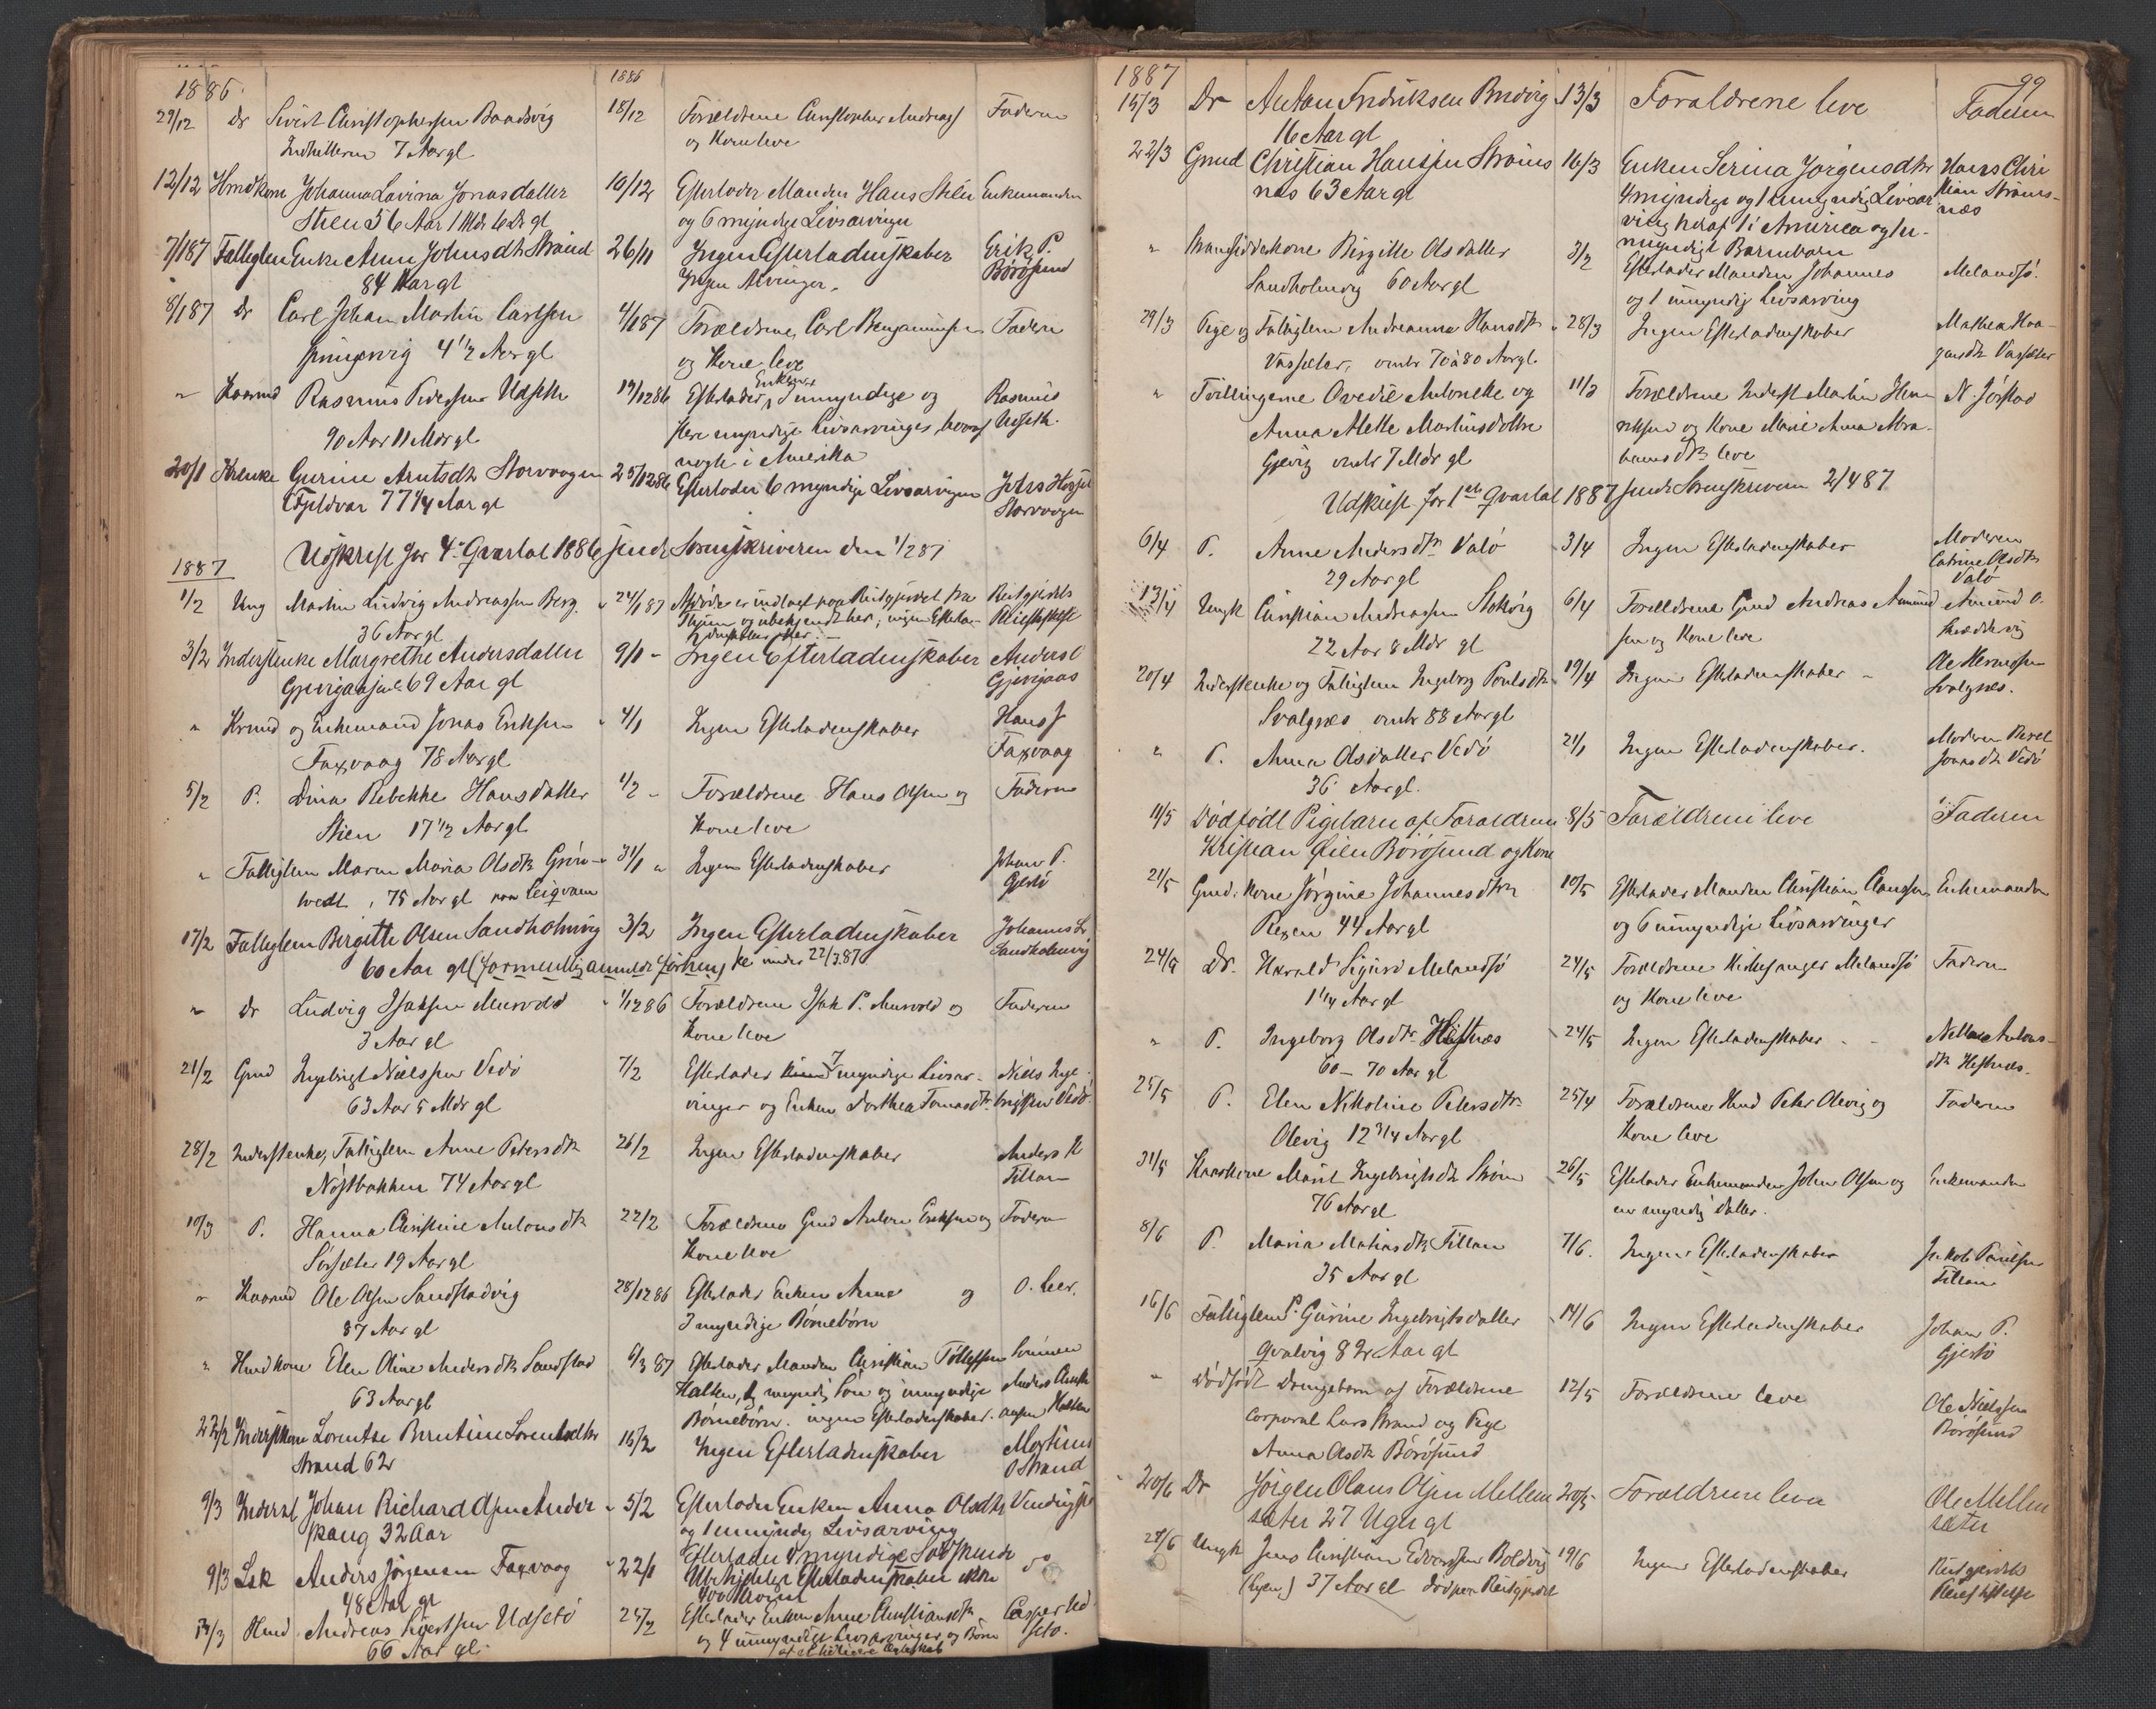 1886
1886
29/12 Dr Sivert Christophersen Baadsvig 18/12 Forældrene Christopher Andreass Faderen
Indhitteren 7 Aar gl og Kone leve
12/12 Hmdkone Johanna Lavina Jonasdatter 10/12 Efterlader Manden Hans Steen Enkemanden
Steen 56 Aar 1 Md 6 D gl og 6 myndige Livsarvinger
7/1 87 Fattiglem Enke Anne Johnsdtr Strand 26/11 Ingen Efterladenskaber Erik P.
84 Aar gl Ingen Arvinger. Börösund
8/1 87 Dr Carl Johan Martin Carlsen 4/1 87 Forældrene Carl Benjaminsen Faderen
4 1/2 Aar gl og Kone leve
" Kaarmd Rasmus Pedersen Udseth 19/12 86 Efterlader Enken umyndige og Rasmus
90 Aar 11 Mdr gl flere myndige Livsarvinger, hvoraf Udseth.
nogle i Amerika
20/1 Gurine Arntsdtr Storvaagen 25/12 86 Efterlader 6 myndige Livsarvinger
Fjeldvær 77 1/4 Aar gl Storvaagen
Udskrift for 4. Qvartal 1886 sendt Sorenskriveren den 1/2 87
1887
1/2 Ung Martin Ludvig Andreassen Berg 24/1 87 Afdöde er indlagt paa Reitgjerdet fra Reitgjerdets
36 Aar gl og ubekjendt her, ingen Efterla- Pleiestiftelse
3/2 Inderstenke Margrethe Andersdatter 9/1 - Ingen Efterladenskaber Anders O
69 Aar gl Gjevigaas
" Krmd og Enkemand Jonas Eriksen 4/1 Ingen Efterladenskaber Hans J
Faxvaag 78 Aar gl Faxvaag
5/2 P. Dina Rebekke Hansdatter 1/2 - Forældrene Hans Olsen og Faderen
Stien 17 1/2 Aar gl Kone leve
" Fattiglem Maren Maria Olsdtr Grön- 31/1 " Ingen Efterladenskaber Johan P.
vedt, 75 Aar gl Gjestö
17/2 Fattiglem Bergitte Olsen Sandholmvig 3/2 Ingen Efterladenskaber Johannes
60 Aar gl (formentlig anmeldt för hen) se under 22/3 87 Sandholmvig
" Dr Ludvig Isaksen Mursvold 1/12 86 Forældrene Isak P. Mursvold og Faderen
3 Aar gl Kone leve
21/2 Gmd Ingebrigt Nielssen Vedö 7/2 Efterlader 7 myndige Livsar- Niels Inge-
63 Aar 5 Mdr gl vinger og Enken Dorthea Tomasdtr. brigtsen Vedö
28/2 Inderstenke, Fattiglem Anne Petersdtr 26/2 Ingen Efterladenskaber Anders K
Nöstbakken 74 Aar gl Fillan
10/3 P. Hanna Christine Antonsdtr 22/2 Forældrene Gmd Anton Eriksen og Faderen
Sörsæter 19 Aar gl Kone leve
" Kaarmd Ole Olsen Sandstadvig 28/12 86 Efterlader Enken Anne og O. Leer.
87 Aar gl 3 myndige Börnebörn
" Hmdkone Elen Oline Andersdtr Sandstad 6/3 87 Efterlader Manden Christian Tollefsen Sönnen
63 Aar gl Halten, 1 myndig Sön og umyndige Anders Christi-
Börnebörn. ingen Efterladenskaber. ansen Halten
22/2 Inderstkone Lorentse Berntine Lorentsdtr 15/2 Ingen Efterladenskaber Martinus
Strand 62 O Strand
9/3 Inderst Johan Richard Olsen Ander- 5/2 Efterlader Enken Anna Olsdtr
skaug 32 Aar og 1 umyndig Livsarving
9/3 Lsk Anders Jörgensen Faxvaag 22/1 Efterlader 4 myndige Södskende do
48 Aar gl Ubetydelige Efterladenskaber ikke
400 Kroner
14/3 Hmd Andreas Sivertsen Udsetö 25/2 Efterlader Enken Anne Christiansdtr Casper Ud-
66 Aar gl. og 4 umyndige Livsarvinger og Börn setö.
af et tidligere Ægteskab
1887 99
15/3 Dr Anton Fredriksen Bredvig 13/3 Forældrene leve Faderen
16 Aar gl
22/3 Gmd Christian Hansen Ströms- 16/3 Enken Serina Jörgensdtr Hans Chri
næs 63 Aar gl 4 myndige og 1 umyndig Livsar- stian Ströms-
ving heraf 1 i America og 1 u- næs
myndigt Barnebarn
" Birgitte Olsdatter 3/2 Efterlader Manden Johannes Melandsö.
Sandholmvig 60 Aar gl og 1 umyndig Livsarving
29/3 Pige og Fattiglem Andreanna Hansdtr 28/3 Ingen Efterladenskaber Mathea Haa-
Vassæter, omtr 70 à 80 Aar gl. gensdtr Vassæter
" Tvillingerne Ovedie Antonette og 11/3 Forældrene Inderst Martin Hen- N. Jörstad
Anna Mette Martinsdøttre riksen og Kone Marie Anna Abra-
Gjevig omtr 7 Mdr gl hamsdtr leve
Udskrift for 1ste Qvartal 1887 sendt Sorenskriveren 2/4 87
6/4 P. Anne Andersdtr Valö 3/4 Ingen Efterladenskaber Moderen
29 Aar gl Catrine Olsdtr
Valö
13/4 Ungk Christian Andreassen Stokvig 6/4 Forældrene Gmd Andreas Amund- Amund O.
22 Aar 8 Mdr gl sen og Kone leve
20/4 Inderstenke og Fattiglem Ingeborg Poulsdtr 19/4 Ingen Efterladenskaber - Ole Hermansen
Svalgnæs omtr 88 Aar gl Svalgnæs.
" P. Anna Olsdatter Vedö 21/1 Ingen Efterladenskaber. Moderen Beret
36 Aar gl. Jonasdtr Vedö
11/5 Dödfödt Pigebarn af Foraeldrene 8/5 Forældrene leve Faderen
Kristian Öien Börösund og Kone
21/5 Gmd. Kone Jörgine Johannesdtr 10/5 Efterlader Manden Christian Clausen Enkemanden
Rexen 44 Aar gl og 6 umyndige Livsarvinger
24/5 Dr. Harald Sigurd Melandsö 24/5 Forældrene Kirkesanger Melandsö Faderen
1 1/4 Aar gl og Kone leve
" P. Ingeborg Olsdtr Hestnæs 24/5 Ingen Efterladenskaber - - Antons-
60 - 70 Aar gl dtr Hestnæs.
25/5 P. Elen Nikoline Petersdtr 25/4 Forældrene Hmd Peter Olevig og Faderen
Olevig 12 3/4 Aar gl Kone leve
31/5 Kaarkone Marit Ingebrigtsdtr Ström 26/5 Efterlader Enkemanden John Olsen og Enkemanden
76 Aar gl en myndig Datter.
8/6 P. Maria Matiasdtr Fillan 7/6. Ingen Efterladenskaber Jakob Paulsen
35 Aar gl Fillan
16/6 Fattiglem P. Gurine Ingebrigtsdatter 14/6 Ingen Efterladenskaber Johan P.
Qvalvig 82 Aar gl Gjestö
" Dödfödt Drengebarn af Forældrene 12/5 Forældrene leve Ole Nielssen
Corporal Lars Strand og Pige Börösund
Anna Olsdtr Börösund
20/6 Dr Jörgen Olaus Olsen Mellem- 20/5 Forældrene leve Ole Mellem
sæter 27 Uger gl sæter
27/6 Ungk Jens Christian Edvardsen Boldvig 19/6 Ingen Efterladenskaber Reitgjerdets
37 Aar gl död paa Reitgjerdet Pleiestiftelse